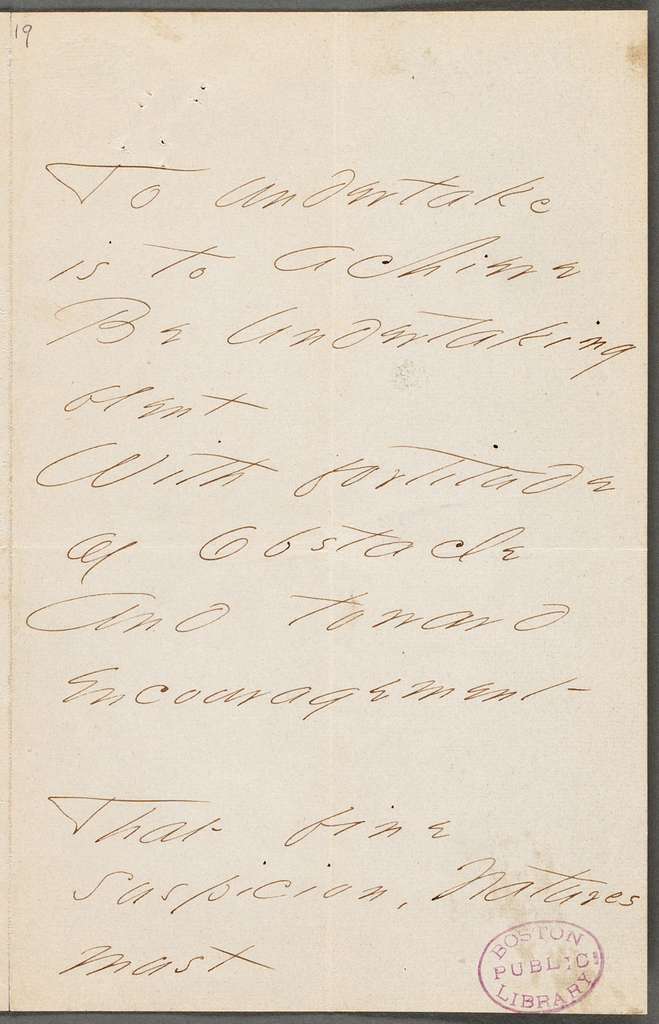 19
To undertake
is to achieve
Be Undertaking
blent
With fortitude
of Obstacle
And toward
Encouragement -
That fine
Suspicion, Natures
must
BOSTON
PUBLIC
LIBRARY